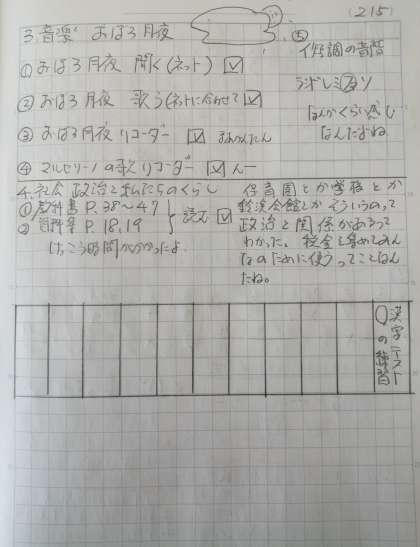 (215)
3.音楽 おぼろ月夜
①おぼろ月夜 聞く(ネット) ☑
②おぼろ月夜 歌う(ネットに合わせて) ☑
③おぼろ月夜リコーダー ☑ まあかんたん
④マルセリーノの歌リコーダー ☑ んー
⑤
短調の音階
ラシドレミファソ
なんかくらい感じ
なんだよね
4.社会 政治と私たちのくらし
①教科書 P.38〜47
②資料集 P.18,19
読む ☑
けっこう時間がかかったよ
保育園とか学校とか
会館とかそういうのって
政治と関係があるって
わかった。税金を集めてみん
なのために使うってことなん
だね。
漢字テスト
の練習